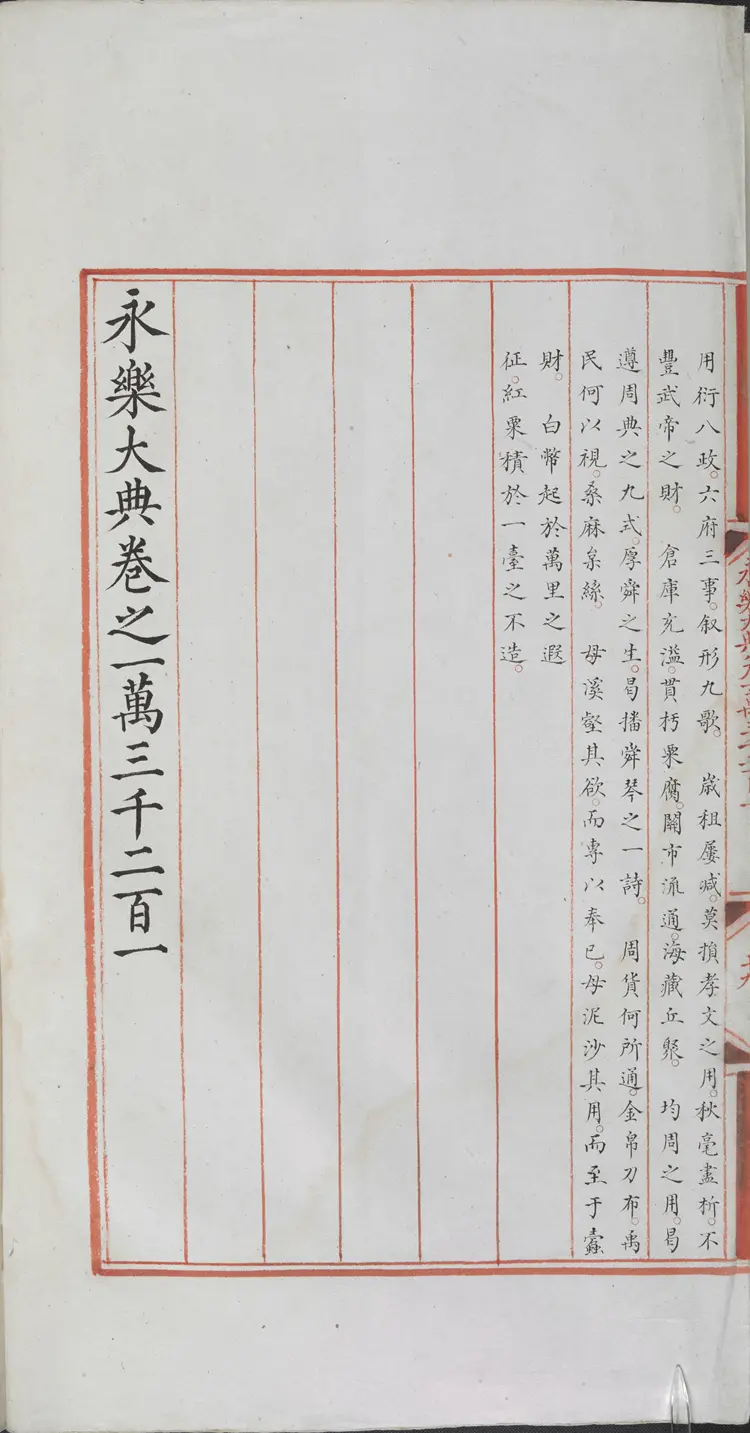 用衍八政。六府三事。叙形九歌。　歲租屢减。莫損孝文之用。秋毫盡析。不
豐武帝之財。　倉庫充溢。貫朽粟腐。關市流通。海藏丘聚。　均周之用。曷
遵周典之九式。厚舜之生。曷播舜琴之一詩。　周貨何所通。金帛刀布。禹
民何以視。桑麻枲絲。　毋溪壑其欲。而專以奉已。毋泥沙其用。而至于蠹
財。　白幣起於萬里之遐
征。紅粟積於一臺之不造。
永樂大典卷之一萬三千二百一